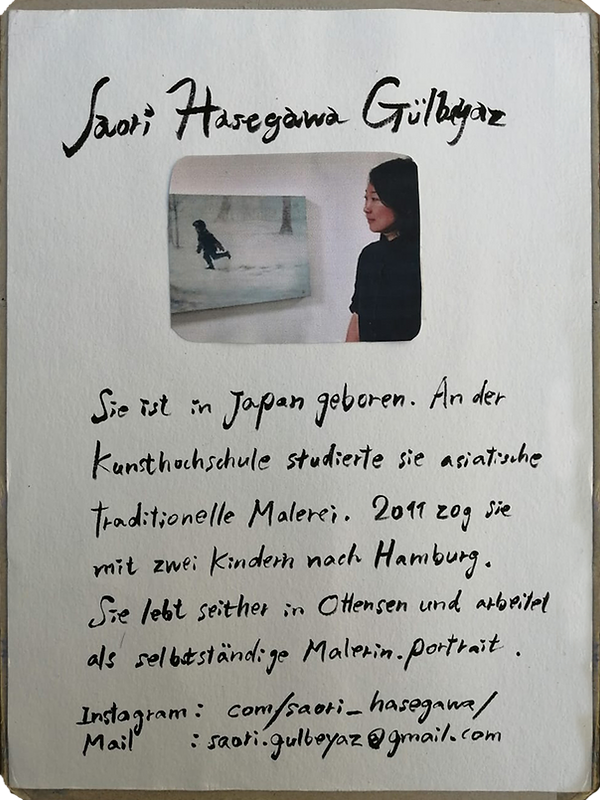 Saori Hasegawa Gülbeyaz
Sie ist in Japan geboren. An der
Kunsthochschule studierte sie asiatische
traditionelle Malerei. 2011 zog sie
mit zwei Kindern nach Hamburg.
Sie lebt seither in Ottensen und arbeitet
als selbstständige Malerin.portrait.
Instagram: com/saori_hasegawa/
Mail : saori.gulbeyaz@gmail.com